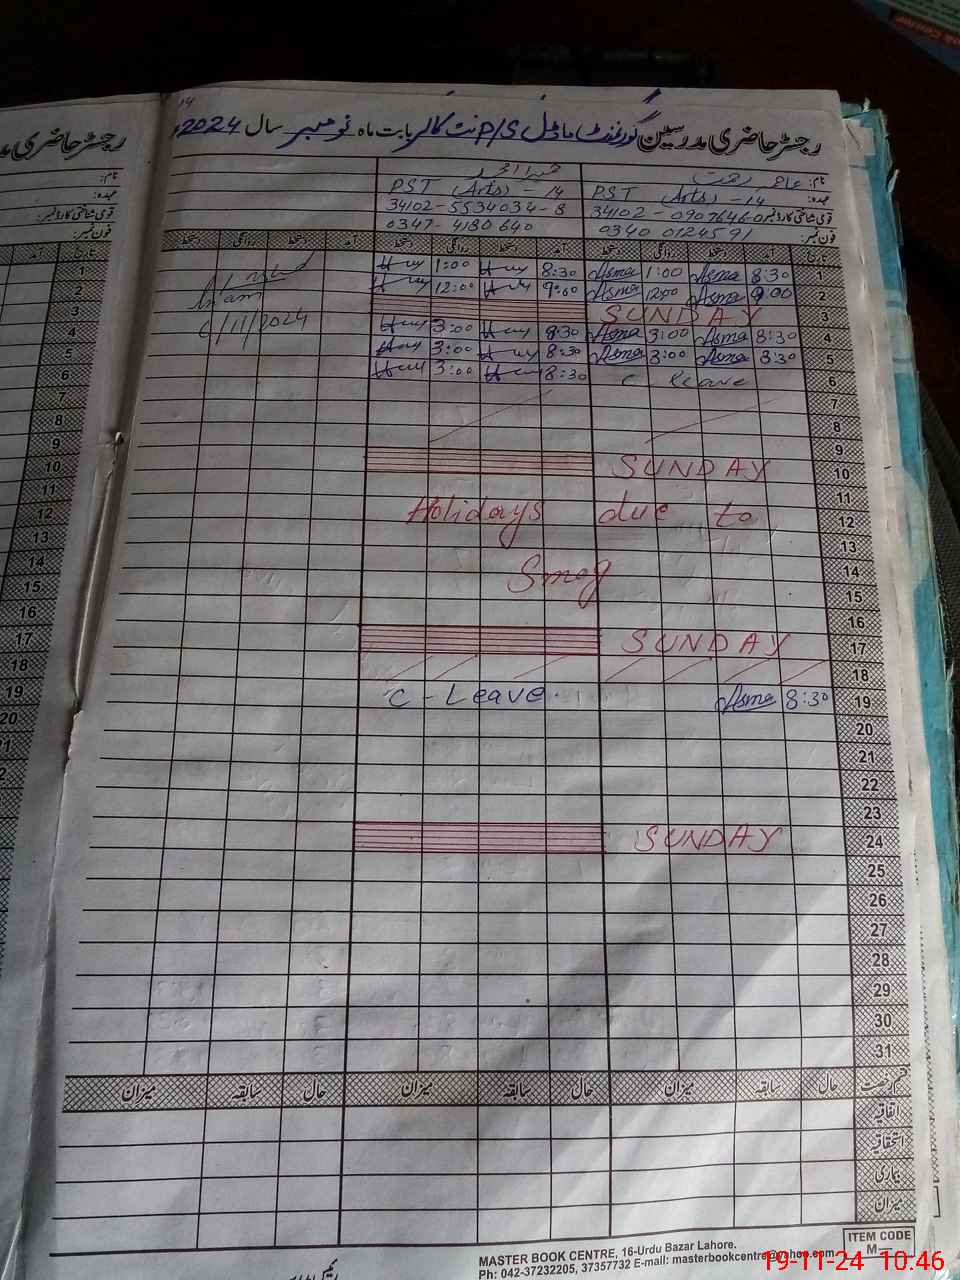 رجسٹر حاضری مدرسین گورنمنٹ ماڈل P/S نت کالر بابت ماہ نومبر سال 2024
نام:
عہدہ: PST (Arts) - 14 PST (Arts) - 14
قومی شناختی کارڈ نمبر: 34102 - 0907646-0 34102-5534034-8
فون نمبر: 0340 0124591 0347-4180640
تاریخ آمد دستخط روانگی دستخط آمد دستخط روانگی دستخط آمد دستخط روانگی دستخط
1 8:30 Asma 1:00 Asma 8:30 1:00
2 9:00 Asma 12:00 Asma 9:00 12:00
3 SUNDAY
4 8:30 Asma 3:00 Asma 8:30 3:00
5 8:30 Asma 3:00 Asma 8:30 3:00
6 C - Leave 8:30 3:00
6/11/2024
7
8
9
10 SUNDAY
11
12 Holidays due to
13
14 Smog
15
16
17 SUNDAY
18
19 8:30 Asma C - Leave.
20
21
22
23
24 SUNDAY
25
26
27
28
29
30
31
قسم رخصت حال سابقہ میزان حال سابقہ میزان حال سابقہ میزان
اتفاقیہ
استحقاقیہ
بیماری
میزان
MASTER BOOK CENTRE, 16-Urdu Bazar Lahore.
Ph: 042-37232205, 37357732 E-mail: masterbookcentre@yahoo.com
ITEM CODE
M-
19-11-24 10.46